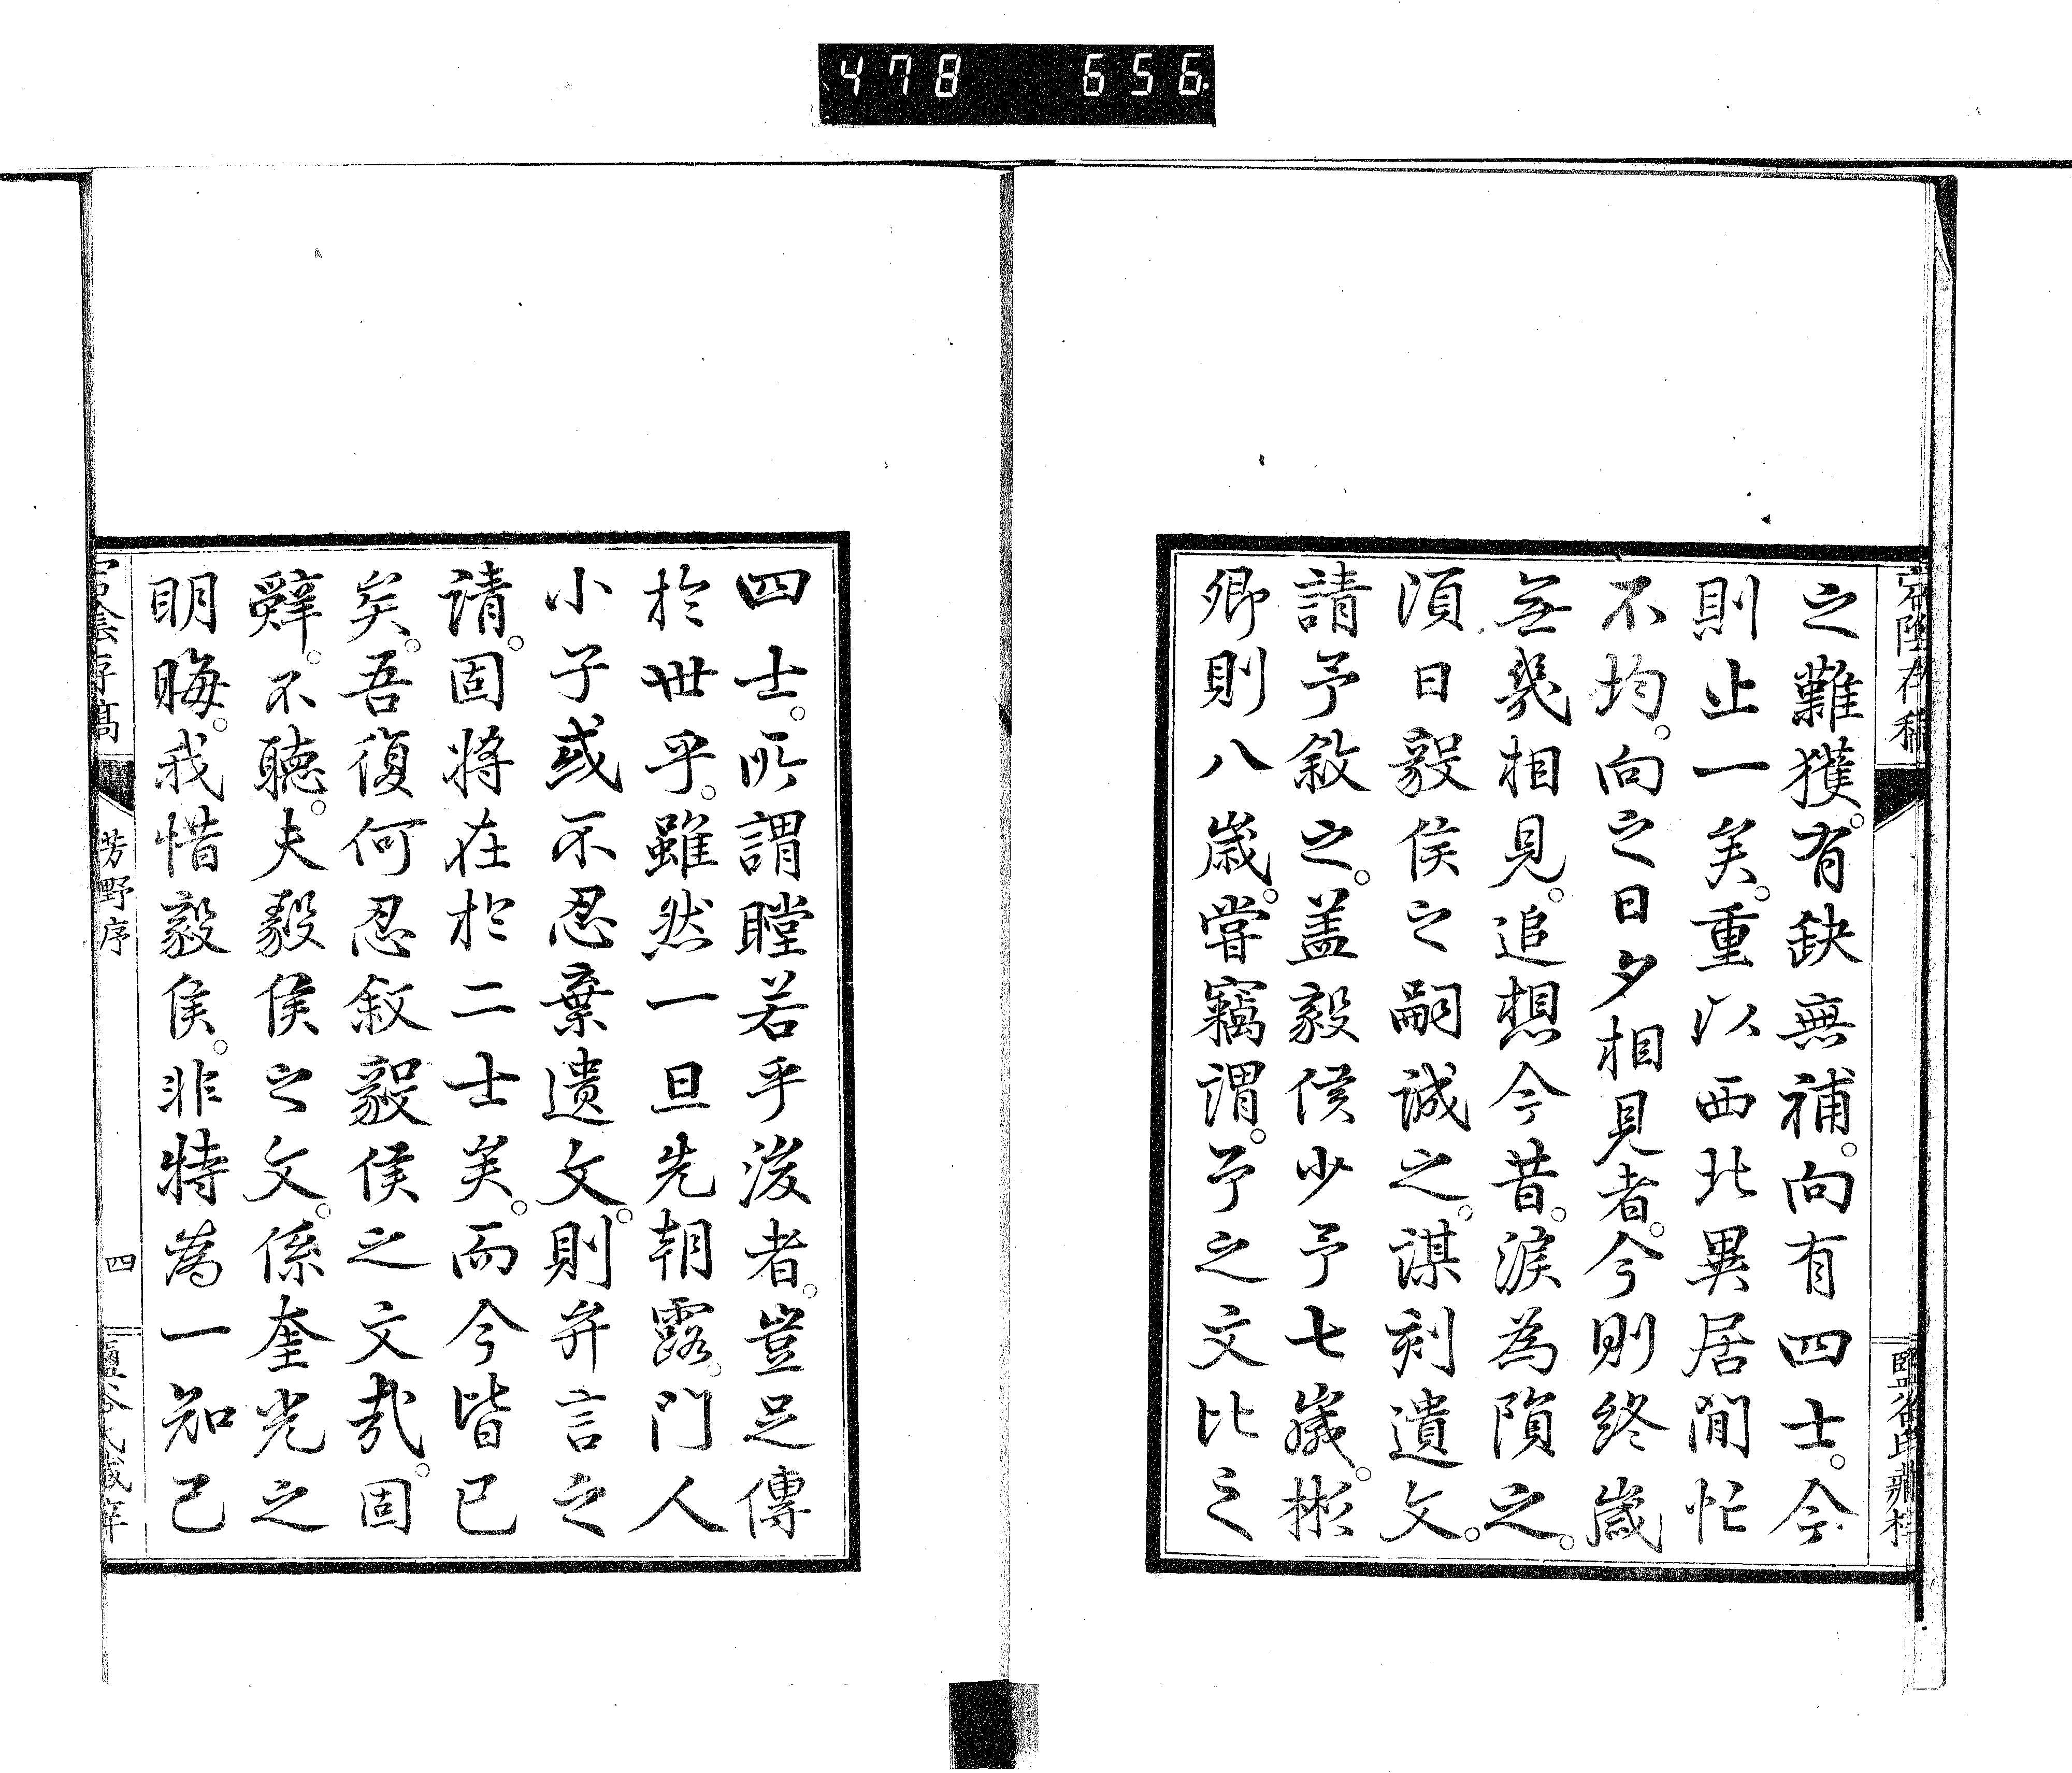 478 656
之難獲。有缺無補。向有四士。今
則止一矣。重以西北異居閒忙
不均。向之日夕相見者。今則終歲
無幾相見。追想今昔。淚為隕之。
須日毅侯之嗣誠之。謀刻遺文。
請予敘之。蓋毅侯少予七歲。彬
卿則八歲。嘗竊謂。予之文比之
四士。所謂瞠若乎後者。豈足傳
於世乎。雖然一旦先朝露。門人
小子或不忍棄遺文。則并言之
請。固將在於二士矣。而今皆已
矣。吾復何忍敘毅侯之文哉。固
辭。不聽。夫毅侯之文。係奎光之
明晦。我惜毅侯。非特為一知己
芳野序
四